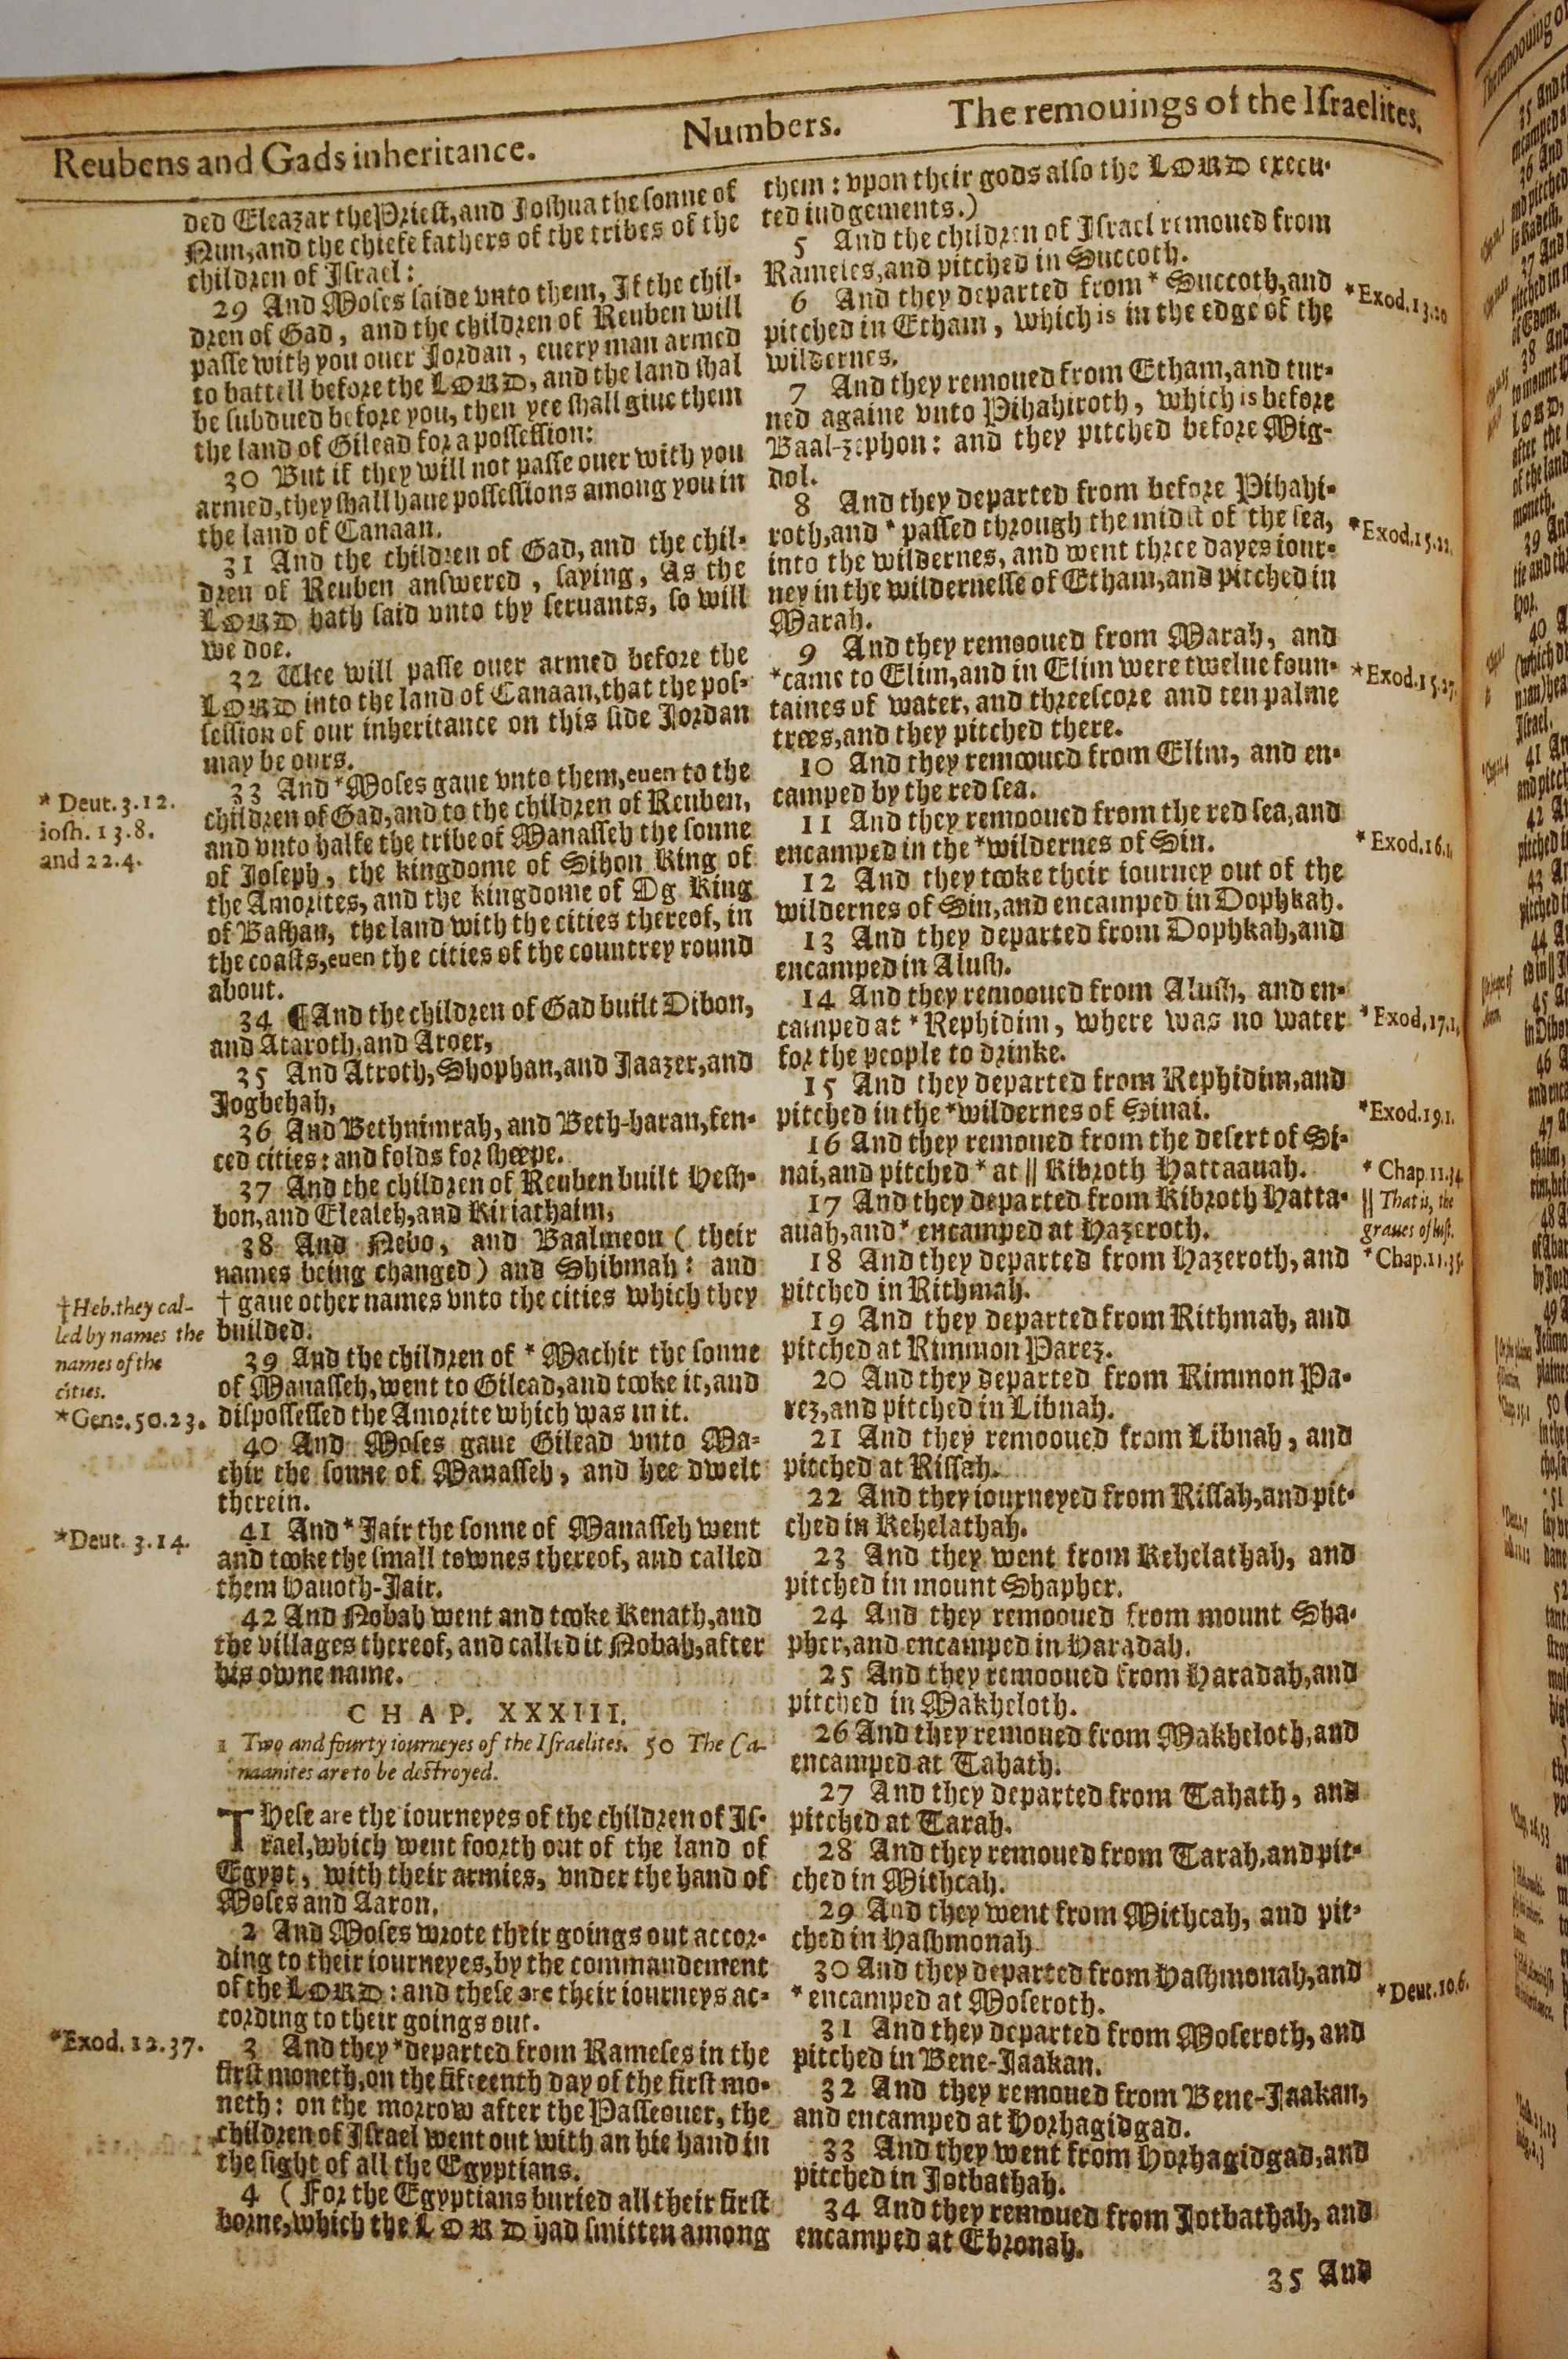 Reubens and Gads inheritance.
Numbers.
The remouings of the Iſraelites.
ded Eleazar the Prieſt, and Joſhua the ſonne of
Nun, and the chiefe fathers of the tribes of the
children of Iſrael:
29 And Moſes ſaide vnto them, If the chil-
dren of Gad, and the children of Reuben will
paſſe with you ouer Jordan, euery man armed
to battell before the LORD, and the land ſhal
be ſubdued before you, then yee ſhall giue them
the land of Gilead for a poſſeſſion:
30 But if they will not paſſe ouer with you
armed, they ſhall haue poſſeſſions among you in
the land of Canaan.
31 And the children of Gad, and the chil-
dren of Reuben anſwered, ſaying, As the
LORD hath ſaid vnto thy ſeruants, ſo will
we doe.
32 Wee will paſſe ouer armed before the
LORD into the land of Canaan, that the poſ-
ſeſſion of our inheritance on this ſide Jordan
may be ours.
33 And *Moſes gaue vnto them, euen to the
children of Gad, and to the children of Reuben,
and vnto halfe the tribe of Manaſſeh the ſonne
of Joſeph, the kingdome of Sihon King of
the Amorites, and the kingdome of Og King
of Baſhan, the land with the cities thereof, in
the coaſts, euen the cities of the countrey round
about.
34 ¶ And the children of Gad built Dibon,
and Ataroth, and Aroer,
35 And Atroth, Shophan, and Jaazer, and
Jogbehah,
36 And Bethnimrah, and Beth-haran, fen-
ced cities: and folds for ſheepe.
37 And the children of Reuben built Heſh-
bon, and Elealeh, and Kiriathaim,
38 And Nebo, and Baalmeon (their
names being changed) and Shibmah: and
† gaue other names vnto the cities which they
builded.
39 And the children of * Machir the ſonne
of Manaſſeh, went to Gilead, and tooke it, and
diſpoſſeſſed the Amorite which was in it.
40 And Moſes gaue Gilead vnto Ma-
chir the ſonne of Manaſſeh, and hee dwelt
therein.
41 And * Jair the ſonne of Manaſſeh went
and tooke the ſmall townes thereof, and called
them Hauoth-Jair.
42 And Nobah went and tooke Kenath, and
the villages thereof, and called it Nobah, after
his owne name.
CHAP. XXXIII.
1 Two and fourty iourneyes of the Iſraelites. 50 The Ca-
naanites are to be deſtroyed.
THeſe are the iourneyes of the children of Iſ-
rael, which went foorth out of the land of
Egypt, with their armies, vnder the hand of
Moſes and Aaron.
2 And Moſes wrote their goings out accor-
ding to their iourneyes, by the commandement
of the LORD: and theſe are their iourneys ac-
cording to their goings out.
3 And they *departed from Rameſes in the
firſt moneth, on the fifteenth day of the firſt mo-
neth: on the morrow after the Paſſeouer, the
children of Iſrael went out with an hie hand in
the ſight of all the Egyptians.
4 (For the Egyptians buried all their firſt
borne, which the LORD had ſmitten among
* Deut. 3. 12.
ioſh. 13. 8.
and 22. 4.
† Heb. they cal-
led by names the
names of the
cities.
*Gene. 50. 23.
*Deut. 3. 14.
*Exod. 12. 37.
them: vpon their gods alſo the LORD execu-
ted iudgements.)
5 And the children of Iſrael remoued from
Rameſes, and pitched in Succoth.
6 And they departed from * Succoth, and
pitched in Etham, which is in the edge of the
wildernes.
7 And they remoued from Etham, and tur-
ned againe vnto Pihahiroth, which is before
Baal-zephon: and they pitched before Mig-
dol.
8 And they departed from before Pihahi-
roth, and * paſſed through the midſt of the ſea,
into the wildernes, and went three dayes iour-
ney in the wilderneſſe of Etham, and pitched in
Marah.
9 And they remooued from Marah, and
*came to Elim, and in Elim were twelue foun-
taines of water, and threeſcore and ten palme
trees, and they pitched there.
10 And they remooued from Elim, and en-
camped by the red ſea.
11 And they remooued from the red ſea, and
encamped in the *wildernes of Sin.
12 And they tooke their iourney out of the
wildernes of Sin, and encamped in Dophkah.
13 And they departed from Dophkah, and
encamped in Aluſh.
14 And they remooued from Aluſh, and en-
camped at * Rephidim, where was no water
for the people to drinke.
15 And they departed from Rephidim, and
pitched in the *wildernes of Sinai.
16 And they remoued from the deſert of Si-
nai, and pitched * at || Kibroth Hattaauah.
17 And they departed from Kibroth Hatta-
auah, and * encamped at Hazeroth.
18 And they departed from Hazeroth, and
pitched in Rithmah.
19 And they departed from Rithmah, and
pitched at Rimmon Parez.
20 And they departed from Rimmon Pa-
rez, and pitched in Libnah.
21 And they remooued from Libnah, and
pitched at Riſſah.
22 And they iourneyed from Riſſah, and pit-
ched in Kehelathah.
23 And they went from Kehelathah, and
pitched in mount Shapher.
24 And they remooued from mount Sha-
pher, and encamped in Haradah.
25 And they remooued from Haradah, and
pitched in Makheloth.
26 And they remoued from Makheloth, and
encamped at Tahath.
27 And they departed from Tahath, and
pitched at Tarah.
28 And they remoued from Tarah, and pit-
ched in Mithcah.
29 And they went from Mithcah, and pit-
ched in Haſhmonah.
30 And they departed from Haſhmonah, and
* encamped at Moſeroth.
31 And they departed from Moſeroth, and
pitched in Bene-Jaakan.
32 And they remoued from Bene-Jaakan,
and encamped at Horhagidgad.
33 And they went from Horhagidgad, and
pitched in Jotbathah.
34 And they remoued from Jotbathah, and
encamped at Ebronah.
35 And
*Exod. 13. 20
*Exod. 15. 22.
*Exod. 15. 27.
*Exod. 16. 1.
*Exod. 17. 1.
*Exod. 19. 1.
* Chap. 11. 34.
|| That is, the
graues of luſt.
* Chap. 11. 35.
*Deut. 10. 6.